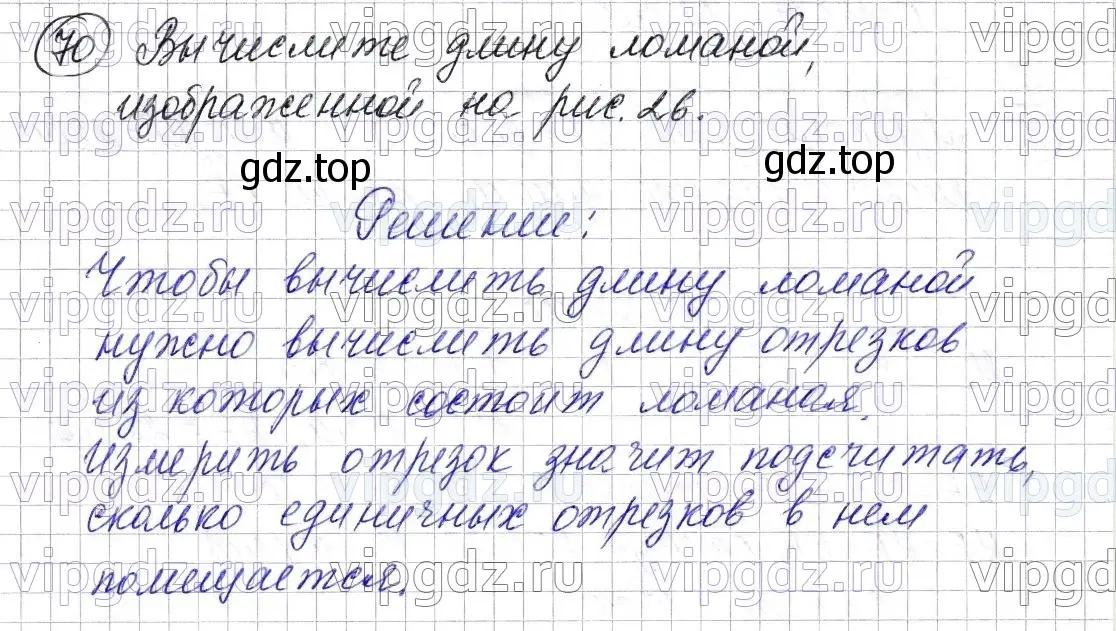 70 Вычислите длину ломаной,
изображенной на рис. 26.
gdz.top gdz.top
Решение:
Чтобы вычислить длину ломаной
нужно вычислить длину отрезков
из которых состоит ломаная.
Измерить отрезок значит подсчитать,
сколько единичных отрезков в нем
помещается.